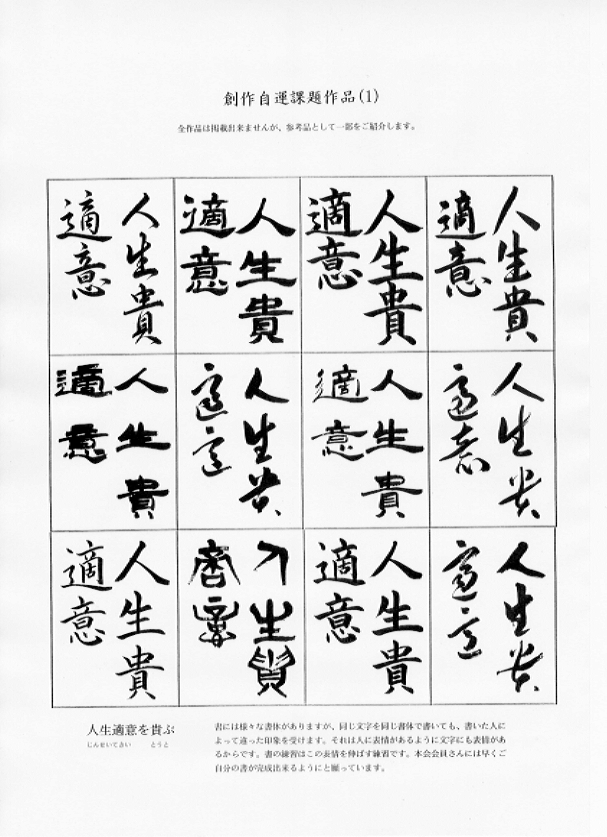 創作自運課題作品(1)
全作品は掲載出来ませんが、参考品として一部をご紹介します。
人生貴
適意
人生貴
適意
人生貴
適意
人生貴
適意
人生貴
適意
人生貴
適意
人生貴
適意
人生貴
適意
人生貴
適意
人生貴
適意
人生貴
適意
人生貴
適意
人生適意を貴ぶ
じんせいてきい とうと
書には様々な書体がありますが、同じ文字を同じ書体で書いても、書いた人に
よって違った印象を受けます。それは人に表情があるように文字にも表情があ
るからです。書の練習はこの表情を伸ばす練習です。本会会員さんには早くご
自分の書が完成出来るようにと願っています。